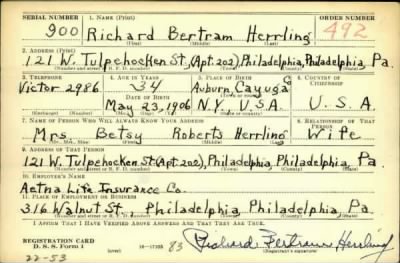 SERIAL NUMBER 1. NAME (Print) ORDER NUMBER
900 Richard Bertram Herrling 492
(First) (Middle) (Last)
2. ADDRESS (Print)
121 W. Tulpehocken St., (Apt. 202), Philadelphia, Philadelphia, Pa.
(Number and street or R. F. D. number) (Town) (County) (State)
3. TELEPHONE 4. AGE IN YEARS 5. PLACE OF BIRTH 6. COUNTRY OF CITIZENSHIP
Victor 2986 34 Auburn, Cayuga
DATE OF BIRTH (Town) (County)
May 23, 1906 N.Y. U.S.A. U.S.A.
(Exchange) (Number) (Mo.) (Day) (Yr.) (State) (Country)
7. NAME OF PERSON WHO WILL ALWAYS KNOW YOUR ADDRESS 8. RELATIONSHIP OF THAT PERSON
Mrs. Betsy Roberts Herrling Wife
(Mr., Mrs., Miss) (First) (Middle) (Last)
9. ADDRESS OF THAT PERSON
121 W. Tulpehocken St. (Apt. 202), Philadelphia, Philadelphia, Pa.
(Number and street or R. F. D. number) (Town) (County) (State)
10. EMPLOYER'S NAME
Aetna Life Insurance Co.
11. PLACE OF EMPLOYMENT OR BUSINESS
316 Walnut St. Philadelphia, Philadelphia, Pa.
(Number and street or R. F. D. number) (Town) (County) (State)
I AFFIRM THAT I HAVE VERIFIED ABOVE ANSWERS AND THAT THEY ARE TRUE.
REGISTRATION CARD
D. S. S. Form 1 16-17105 83 Richard Bertram Herrling
22-53